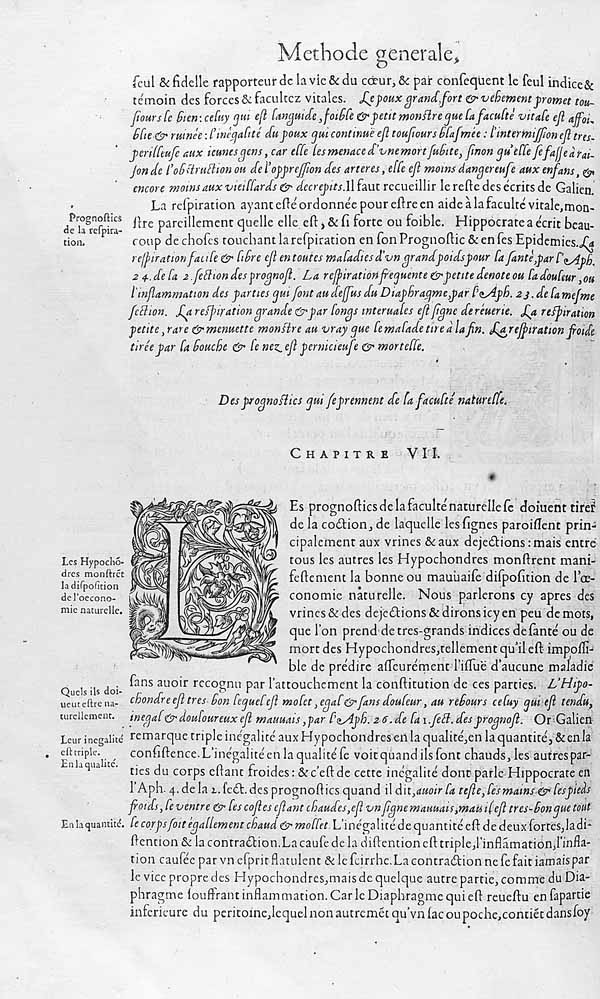 Methode generale,
ſeul & fidelle rapporteur de la vie & du cœur, & par conſequent le ſeul indice &
témoin des forces & facultez vitales. Le poux grand, fort & vehement promet tou-
ſiours le bien: celuy qui eſt languide, foible & petit monſtre que la faculté vitale eſt affoi-
blie & ruinée: l'inégalité du poux qui continuë eſt touſiours blaſmée: l'intermiſſion eſt tres-
perilleuſe aux ieunes gens, car elle les menace d'vne mort ſubite, ſinon qu'elle ſe faſſe à rai-
ſon de l'obſtruction ou de l'oppreſſion des arteres, elle eſt moins dangereuſe aux enfans, &
encore moins aux vieillards & decrepits. Il faut recueillir le reſte des écrits de Galien.
La reſpiration ayant eſté ordonnée pour eſtre en aide à la faculté vitale, mon-
Prognoſtics
de la reſpira-
tion.
ſtre pareillement quelle elle eſt, & ſi forte ou foible. Hippocrate a écrit beau-
coup de choſes touchant la reſpiration en ſon Prognoſtic & en ſes Epidemies. La
reſpiration facile & libre eſt en toutes maladies d'vn grand poids pour la ſanté, par l'Aph.
24. de la 2. ſection des prognoſt. La reſpiration frequente & petite denote ou la douleur, ou
l'inflammation des parties qui ſont au deſſus du Diaphragme, par l'Aph. 23. de la meſme
ſection. La reſpiration grande & par longs interuales eſt ſigne de réuerie. La reſpiration
petite, rare & menuette monſtre au vray que le malade tire à la fin. La reſpiration froide
tirée par la bouche & le nez eſt pernicieuſe & mortelle.
Des prognoſtics qui ſe prennent de la faculté naturelle.
CHAPITRE VII.
LEs prognoſtics de la faculté naturelle ſe doiuent tirer
de la coction, de laquelle les ſignes paroiſſent prin-
cipalement aux vrines & aux dejections: mais entre
Les Hypochõ-
dres monſtrẽt
la diſpoſition
de l'oecono-
mie naturelle.
tous les autres les Hypochondres monſtrent mani-
feſtement la bonne ou mauuaiſe diſpoſition de l'œ-
conomie naturelle. Nous parlerons cy apres des
vrines & des dejections & dirons icy en peu de mots,
que l'on prend de tres-grands indices de ſanté ou de
mort des Hypochondres, tellement qu'il eſt impoſſi-
ble de prédire aſſeurément l'iſſuë d'aucune maladie
ſans auoir recognu par l'attouchement la conſtitution de ces parties. L'Hipo-
Quels ils doi-
uent eſtre na-
turellement.
chondre eſt tres bon lequel eſt molet, egal & ſans douleur, au rebours celuy qui eſt tendu,
inegal & douloureux eſt mauuais, par l'Aph. 26. de la 1. ſect. des prognoſt. Or Galien
Leur inegalité
eſt triple.
En la qualité.
remarque triple inégalité aux Hypochondres en la qualité, en la quantité, & en la
conſiſtence. L'inégalité en la qualité ſe voit quand ils ſont chauds, les autres par-
ties du corps eſtant froides: & c'eſt de cette inégalité dont parle Hippocrate en
l'Aph. 4. de la 2. ſect. des prognoſtics quand il dit, auoir la teſte, les mains & les pieds
froids, le ventre & les coſtes eſtant chaudes, eſt vn ſigne mauuais, mais il eſt tres-bon que tout
En la quantité.
le corps ſoit égallement chaud & mollet. L'inégalité de quantité eſt de deux ſortes, la di-
ſtention & la contraction. La cauſe de la diſtention eſt triple, l'inflãmation, l'infla-
tion cauſée par vn eſprit flatulent & le ſcirrhe. La contraction ne ſe fait iamais par
le vice propre des Hypochondres, mais de quelque autre partie, comme du Dia-
phragme ſouffrant inflammation. Car le Diaphragme qui eſt reueſtu en ſa partie
inferieure du peritoine, lequel non autremẽt qu'vn ſac ou poche, contiẽt dans ſoy